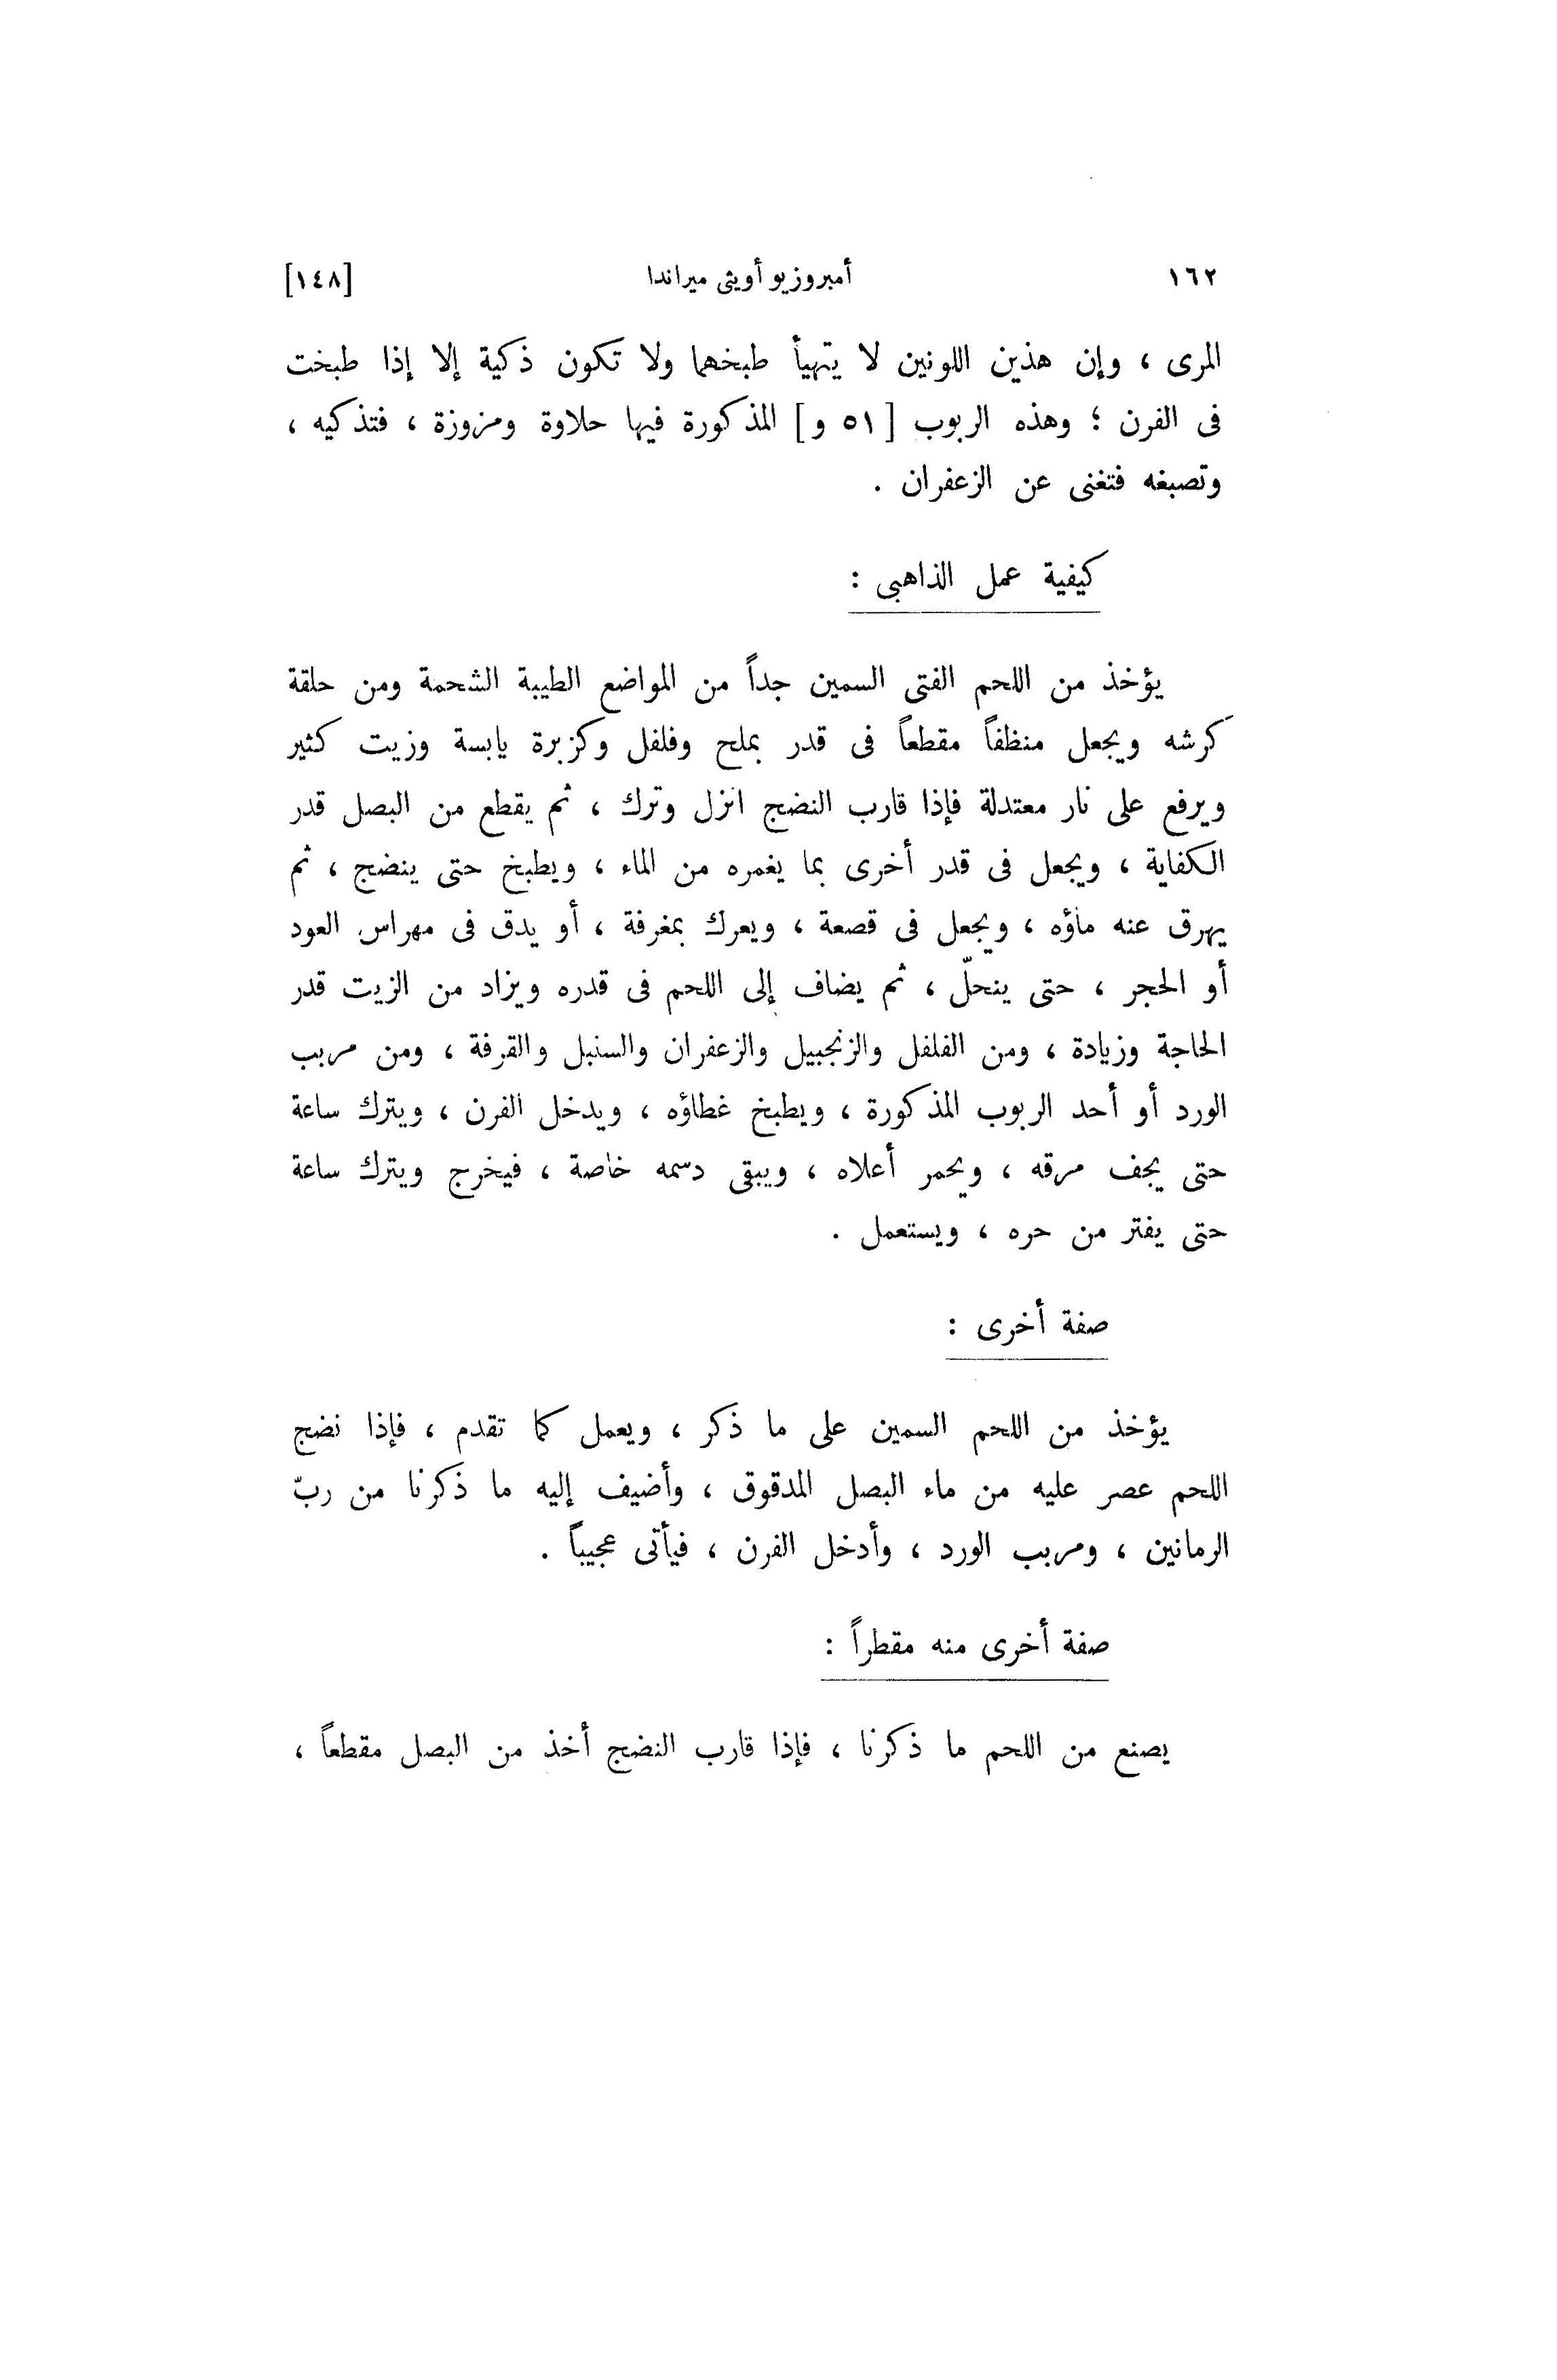 ١٦٢ أمبروزيو أويثى ميراندا [١٤٨]
المرى ، وإن هذين اللونين لا يتهيأ طبخهما ولا تكون ذكية إلا إذا طبخت
فى الفرن ؛ وهذه الربوب [ ٥١ و ] المذكورة فيها حلاوة ومزوزة ، فتذكيه ،
وتصبغه فتغنى عن الزعفران .
كيفية عمل الذاهبى :
يؤخذ من اللحم الفتى السمين جداً من المواضع الطيبة الشحمة ومن حلقة
كرشه ويجعل منظفاً مقطعاً فى قدر بملح وفلفل وكزبرة يابسة وزيت كثير
ويرفع على نار معتدلة فإذا قارب النضج انزل وترك ، ثم يقطع من البصل قدر
الكفاية ، ويجعل فى قدر أخرى بما يغمره من الماء ، ويطبخ حتى ينضج ، ثم
يهرق عنه ماؤه ، ويجعل فى قصعة ، ويعرك بمغرفة ، أو يدق فى مهراس العود
أو الحجر ، حتى ينحلّ ، ثم يضاف إلى اللحم فى قدره ويزاد من الزيت قدر
الحاجة وزيادة ، ومن الفلفل والزنجبيل والزعفران والسنبل والقرفة ، ومن مربب
الورد أو أحد الربوب المذكورة ، ويطبخ غطاؤه ، ويدخل الفرن ، ويترك ساعة
حتى يجف مرقه ، ويحمر أعلاه ، ويبقى دسمه خاصة ، فيخرج ويترك ساعة
حتى يفتر من حره ، ويستعمل .
صفة أخرى :
يؤخذ من اللحم السمين على ما ذكر ، ويعمل كما تقدم ، فإذا نضج
اللحم عصر عليه من ماء البصل المدقوق ، وأضيف إليه ما ذكرنا من ربّ
الرمانين ، ومربب الورد ، وأدخل الفرن ، فيأتى عجيباً .
صفة أخرى منه مقطراً :
يصنع من اللحم ما ذكرنا ، فإذا قارب النضج أخذ من البصل مقطعاً ،